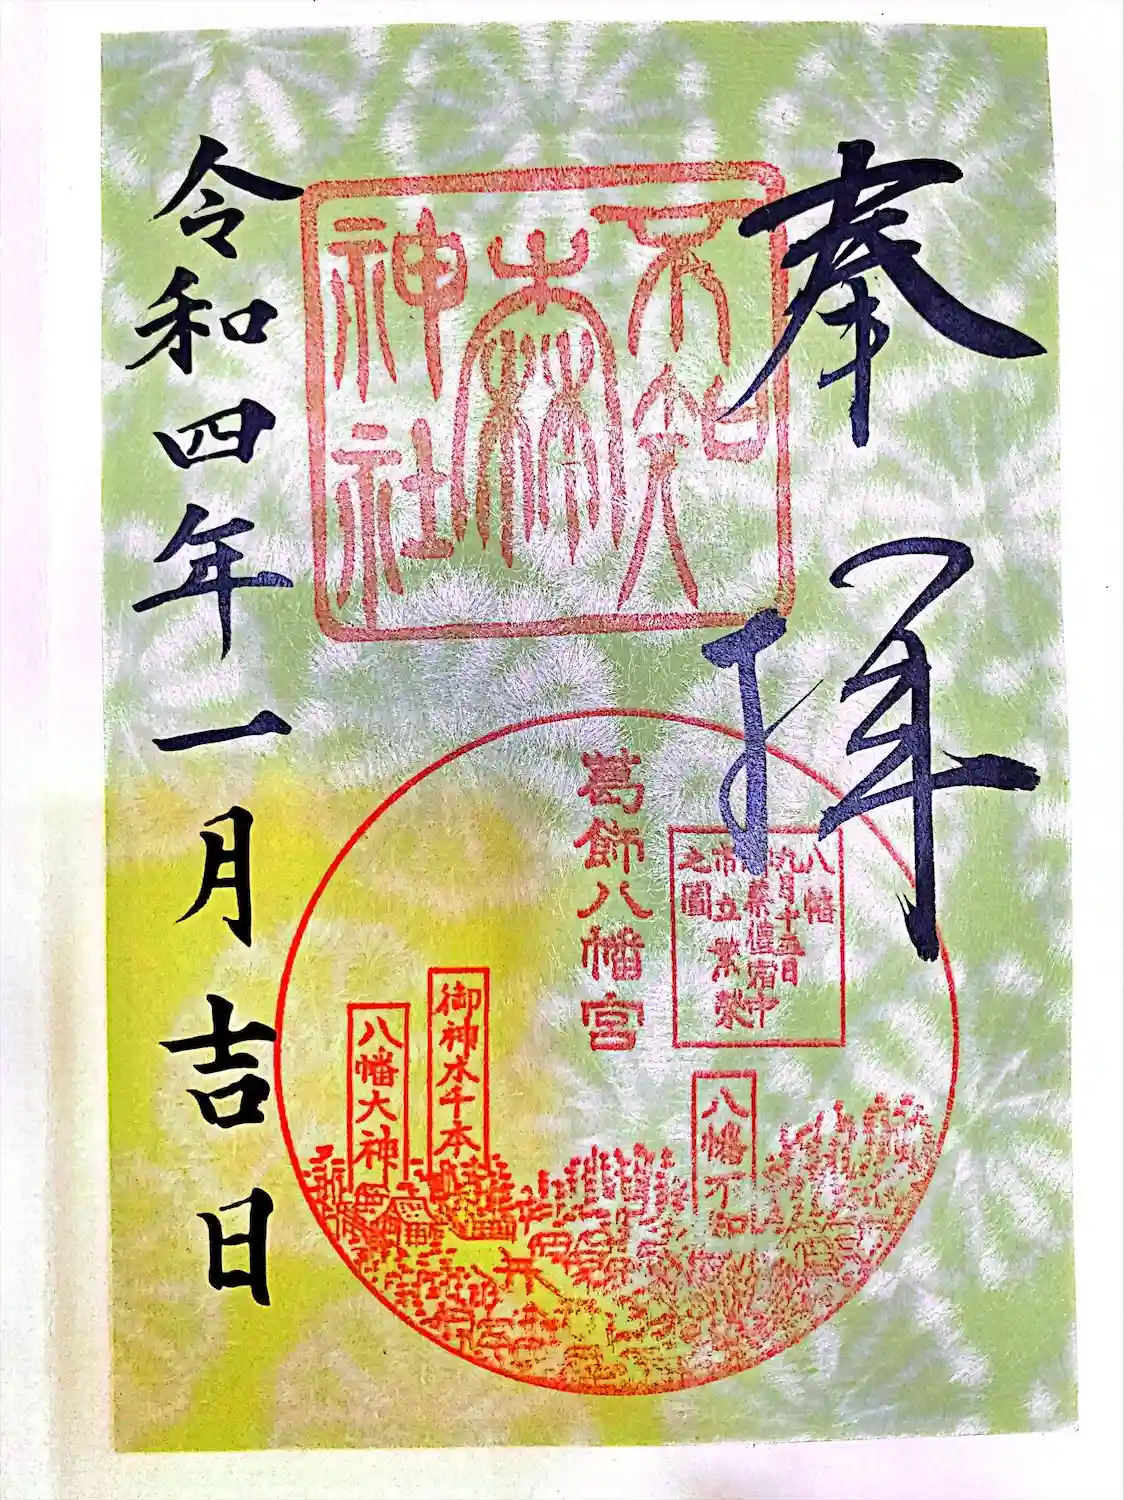 奉拝
不知
森
神社
葛飾八幡宮
八幡
九月十五日
祭禮宿中
市立繁栄
之圖
八幡不知
御神木千本
八幡大神
令和四年一月吉日